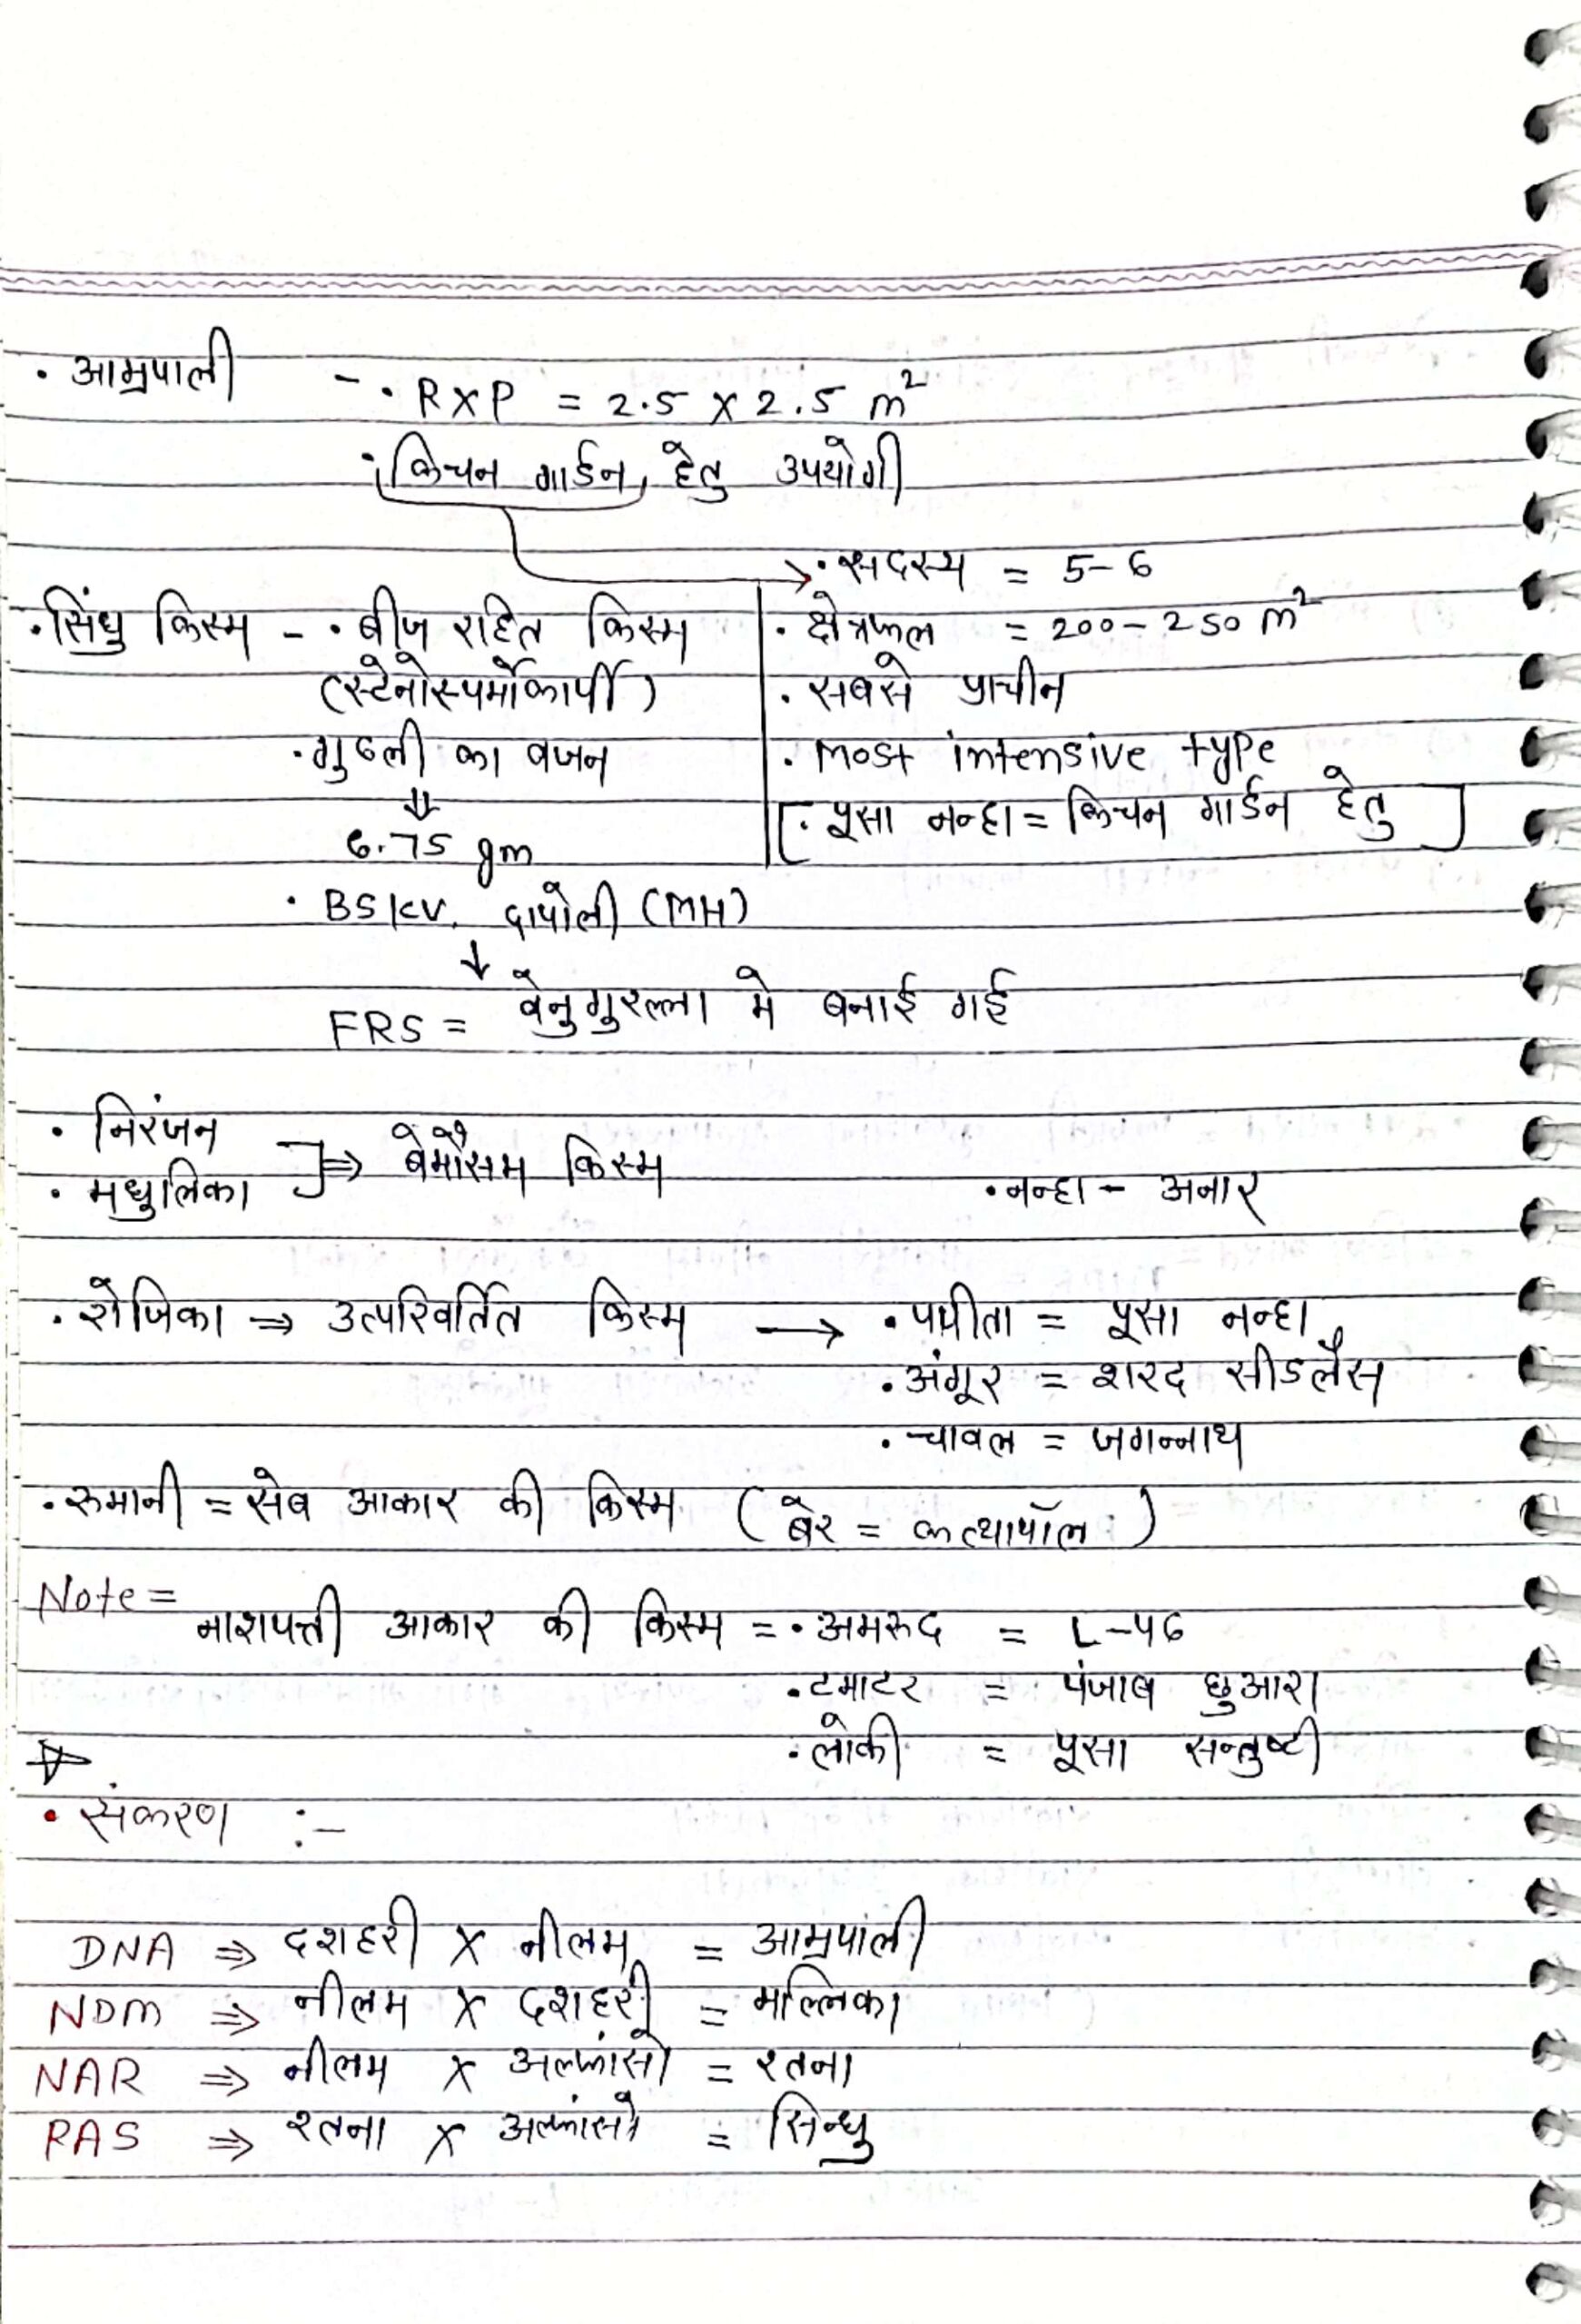 · आम्रपाली - · R×P = 2.5 × 2.5 m²
· किचन गार्डन हेतु उपयोगी
→ · सदस्य = 5-6
· सिंधु किस्म - · बीज रहित किस्म
(स्टेनोस्पर्मोकार्पी)
· गुठली का वजन
⇓
6.75 gm
· क्षेत्रफल = 200-250 m²
· सबसे प्राचीन
· most intensive type
[· पूसा नन्हा = किचन गार्डन हेतु]
· BSKV, दापोली (MH)
↓
FRS = वेनुगुरल्ला मे बनाई गई
· निरंजन
· मधुलिका ] ⇒ बेमौसम किस्म
· नन्हा - अनार
· रोजिका ⇒ उत्परिवर्तित किस्म → · पपीता = पूसा नन्हा
· अंगूर = शरद सीडलैस
· चावल = जगन्नाथ
· रुमानी = सेब आकार की किस्म (बेर = कत्थापॉल)
Note =
नाशपत्ती आकार की किस्म = · अमरुद = L-46
· टमाटर = पंजाब छुआरा
· लोकी = पूसा सन्तुष्टी
· संकरण :-
DNA ⇒ दशहरी × नीलम = आम्रपाली
NDM ⇒ नीलम × दशहरी = मल्लिका
NAR ⇒ नीलम × अल्फांसो = रतना
RAS ⇒ रतना × अल्फांसो = सिन्धु